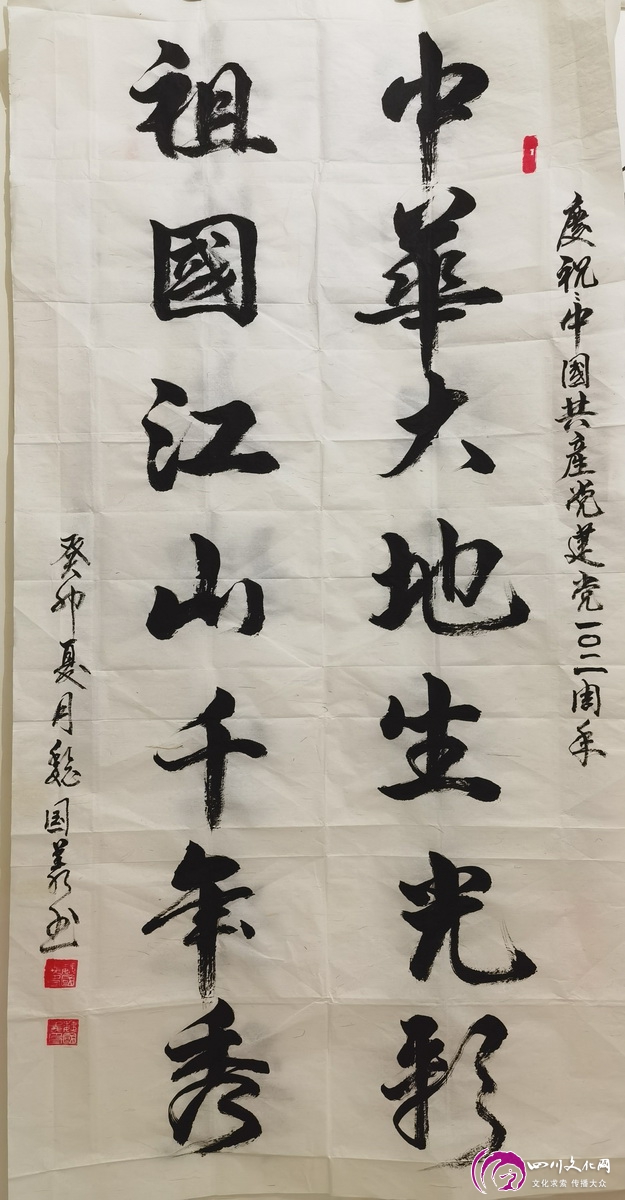 慶祝中國共產党建党一〇二周年
中華大地生光彩
祖國江山千年秀
癸卯夏月魏国義书
四川文化网
文化求索 传播大众